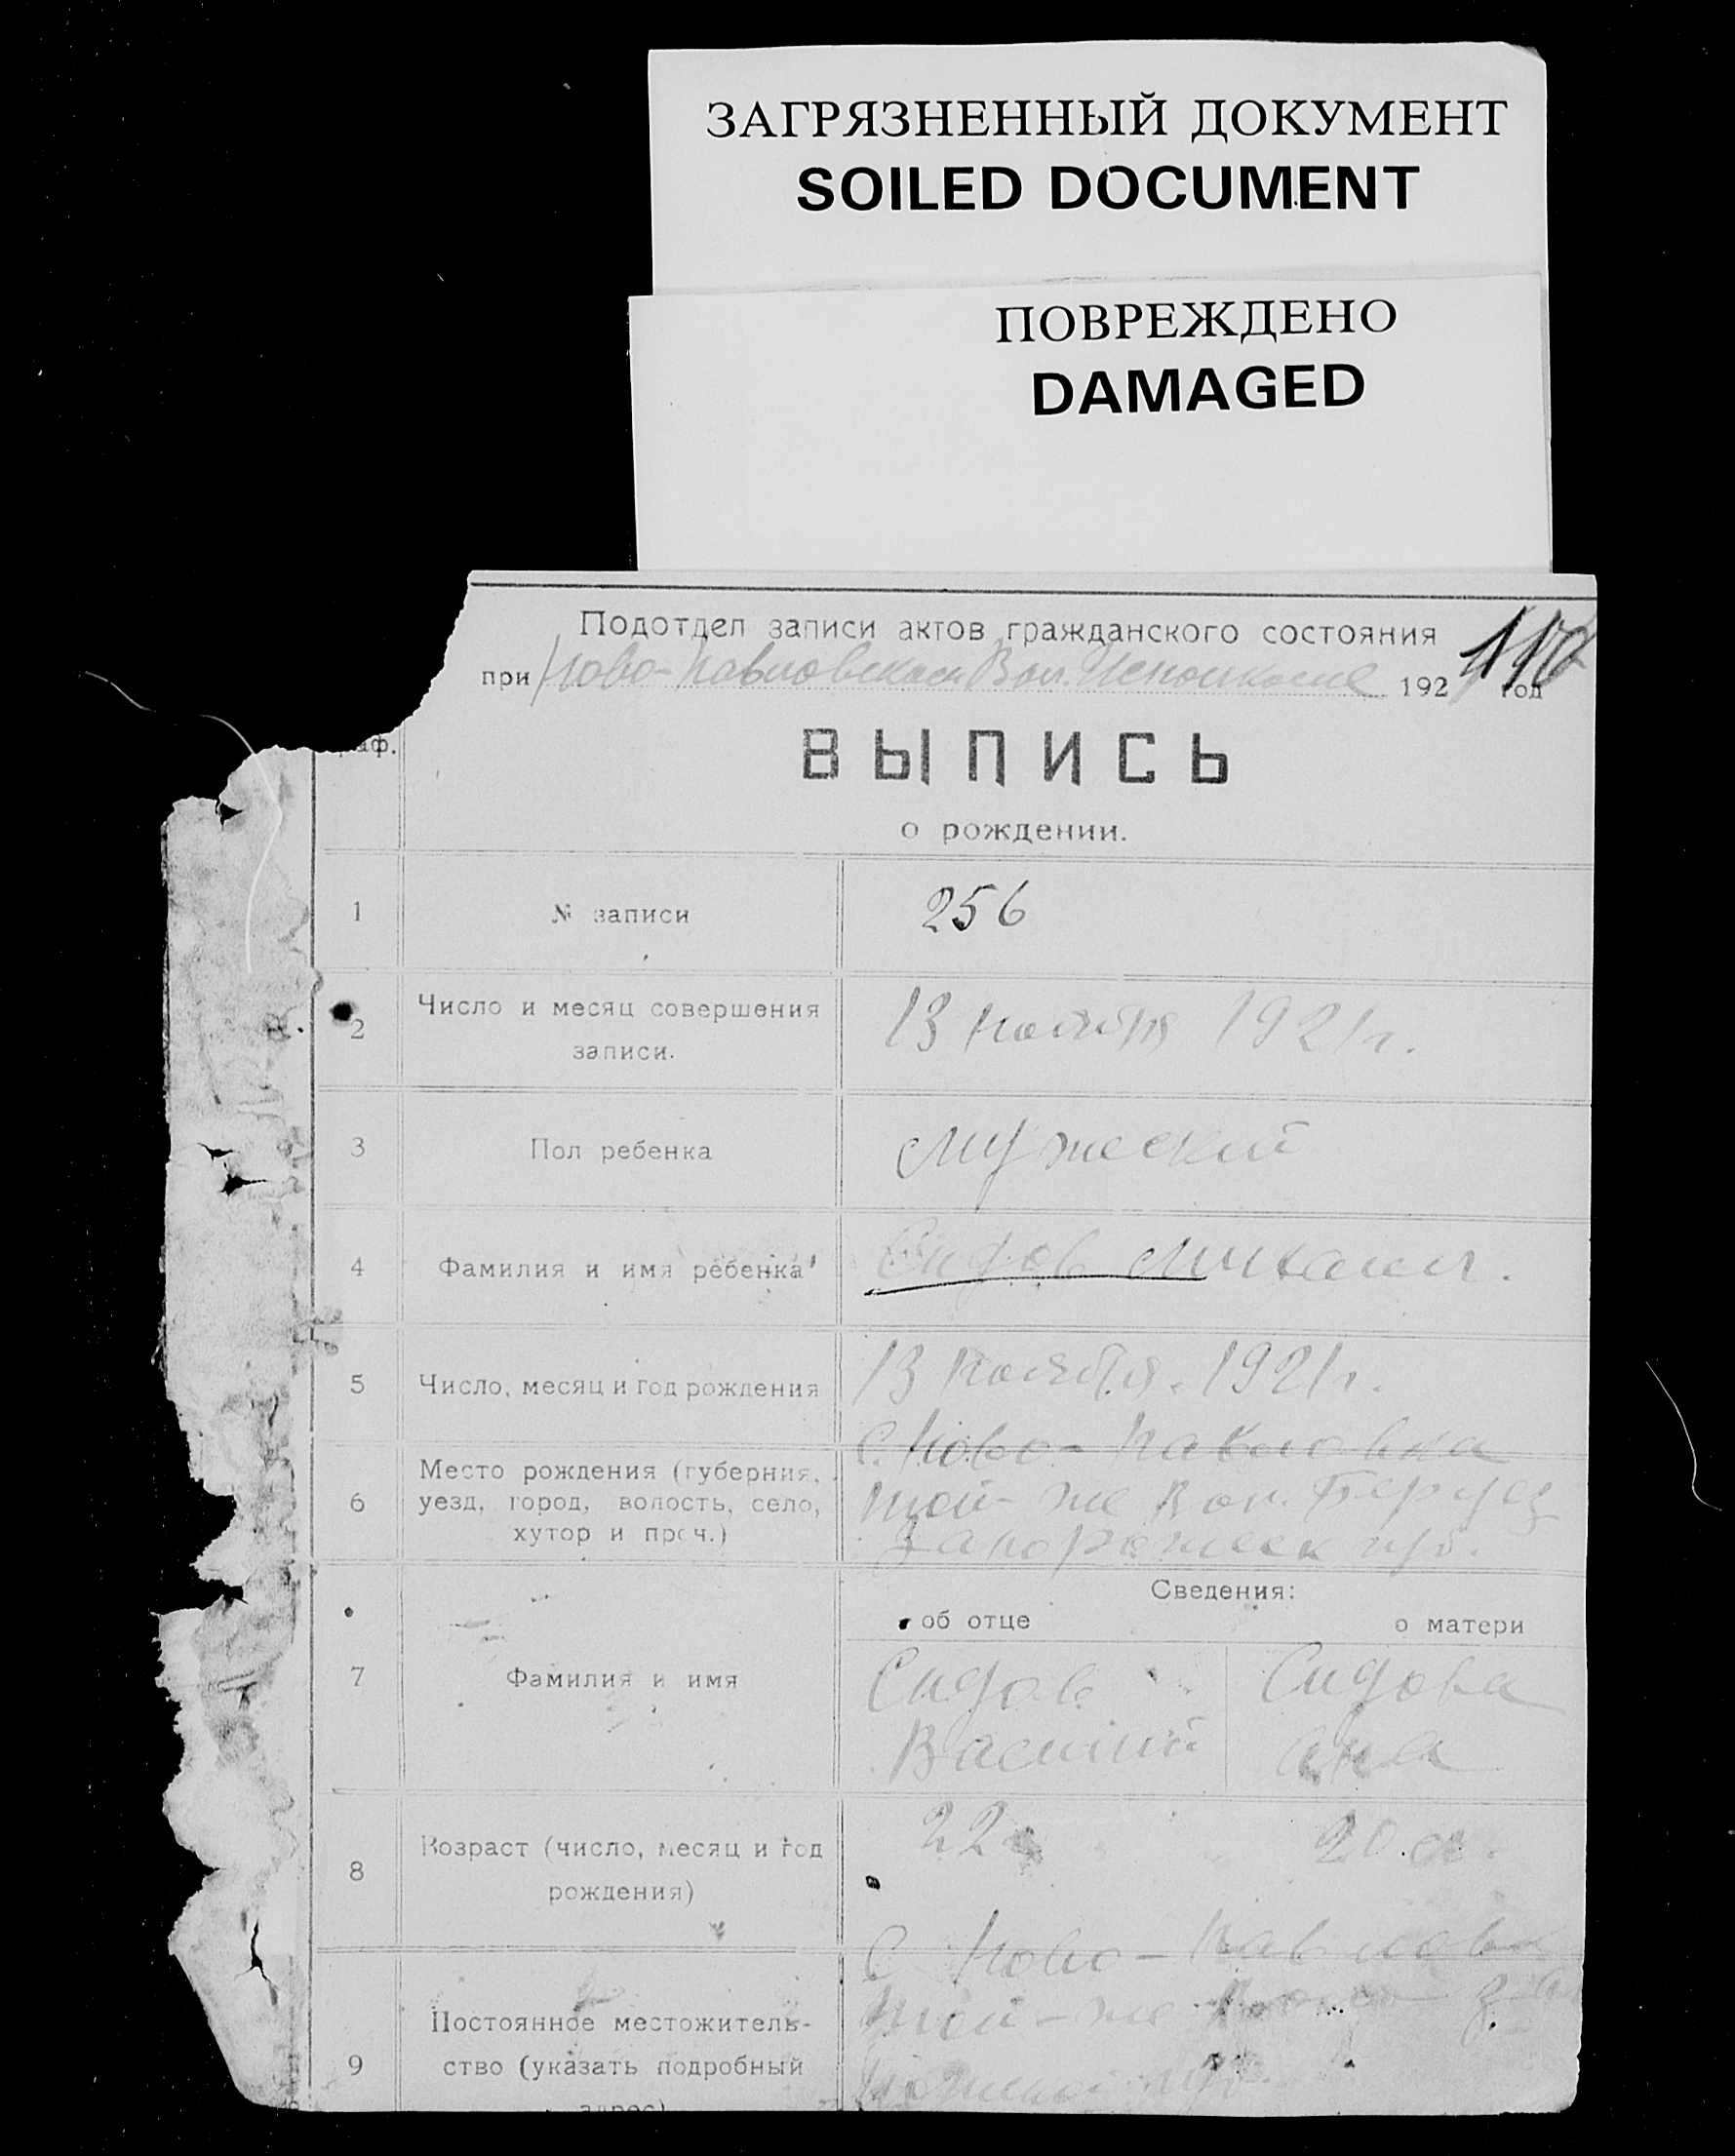 ЗАГРЯЗНЕННЫЙ ДОКУМЕНТ
SOILED DOCUMENT
ПОВРЕЖДЕНО
DAMAGED
Подотдел записи актов гражданского состояния
при Ново-Павловском Вол. Исполкоме 192 год
110
раф.
ВЫПИСЬ
о рождении.
1 № записи 256
2 Число и месяц совершения
записи.
13 ноября 1921 г.
3 Пол ребенка мужеский
4 Фамилия и имя ребенка Сидов Михаил.
5 Число, месяц и год рождения 13 ноября. 1921 г.
6 Место рождения (губерния,
уезд, город, волость, село,
хутор и проч.)
с. Ново-Павловка
той-же Вол. Бер уез
Запорожск губ.
Сведения:
об отце о матери
7 Фамилия и имя
Сидов Сидова
Василий Анна
8 Возраст (число, месяц и год
рождения)
22 20
9 Постоянное местожитель-
ство (указать подробный
адрес)
с Ново-Павловк
той-же
губ.